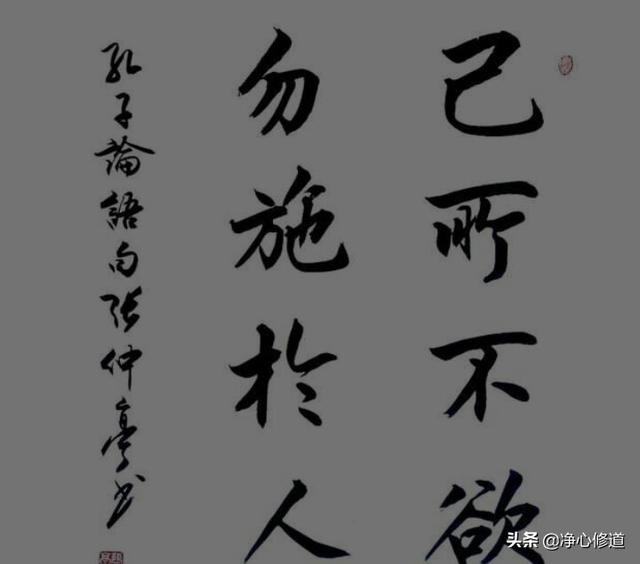 己所不欲
勿施於人
孔子論語句張仲亭书
头条@净心修道